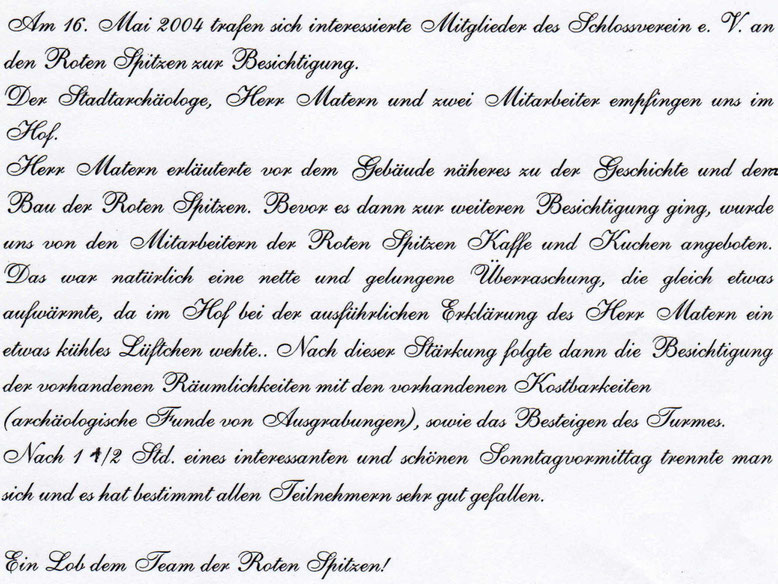 Am 16. Mai 2004 trafen sich interessierte Mitglieder des Schlossverein e. V. an
den Roten Spitzen zur Besichtigung.
Der Stadtarchäologe, Herr Matern und zwei Mitarbeiter empfingen uns im
Hof.
Herr Matern erläuterte vor dem Gebäude näheres zu der Geschichte und dem
Bau der Roten Spitzen. Bevor es dann zur weiteren Besichtigung ging, wurde
uns von den Mitarbeitern der Roten Spitzen Kaffe und Kuchen angeboten.
Das war natürlich eine nette und gelungene Überraschung, die gleich etwas
aufwärmte, da im Hof bei der ausführlichen Erklärung des Herr Matern ein
etwas kühles Lüftchen wehte.. Nach dieser Stärkung folgte dann die Besichtigung
der vorhandenen Räumlichkeiten mit den vorhandenen Kostbarkeiten
(archäologische Funde von Ausgrabungen), sowie das Besteigen des Turmes.
Nach 1 1/2 Std. eines interessanten und schönen Sonntagvormittag trennte man
sich und es hat bestimmt allen Teilnehmern sehr gut gefallen.
Ein Lob dem Team der Roten Spitzen!